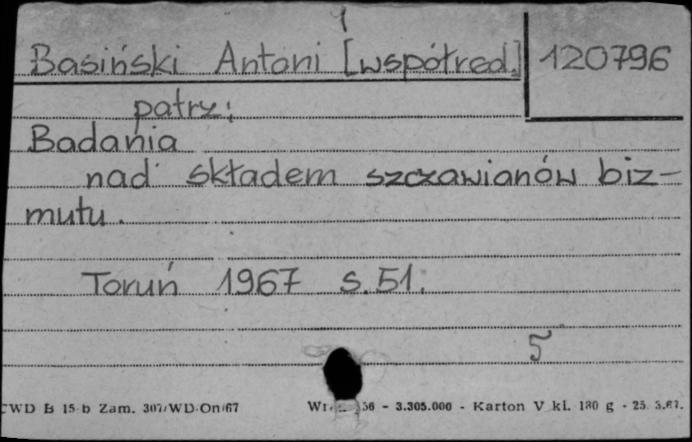 Basiński Antoni [współred.] 120796
patrz:
Badania
nad składem szczawianów biz-
mutu.
Toruń 1967 s. 51.
5
CWD B 15-b Zam. 307/WD-On/67 - 3.305.000 - Karton V kl. 180 g - 25. 3.67.